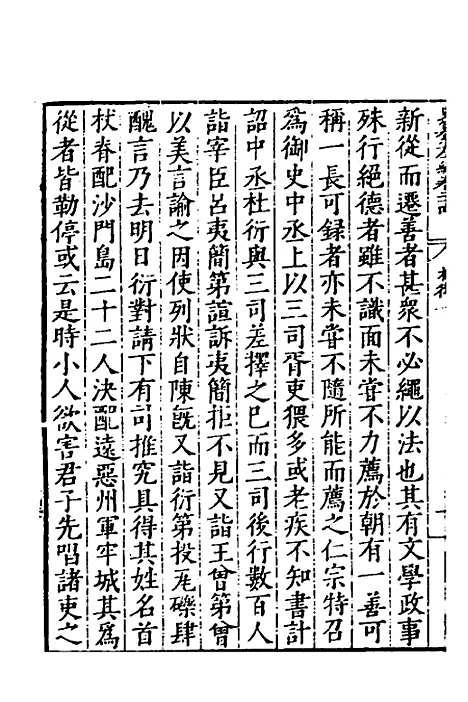 新從而遷善者甚眾不必繩以法也其有文學政事
殊行絕德者雖不識面未甞不力薦於朝有一善可
稱一長可録者亦未甞不隨所能而薦之仁宗特召
為御史中丞上以三司胥吏猥多或老疾不知書計
詔中丞杜衍與三司差擇之已而三司後行數百人
詣宰臣呂夷簡第諠訴夷簡拒不見又詣王曾第曾
以美言諭之因使列狀自陳旣又詣衍第投瓦礫肆
醜言乃去明日衍對請下有司推究具得其姓名首
杖脊配沙門島二十二人決配遠惡州軍牢城其為
從者皆勒停或云是時小人欲害君子先唱諸吏之